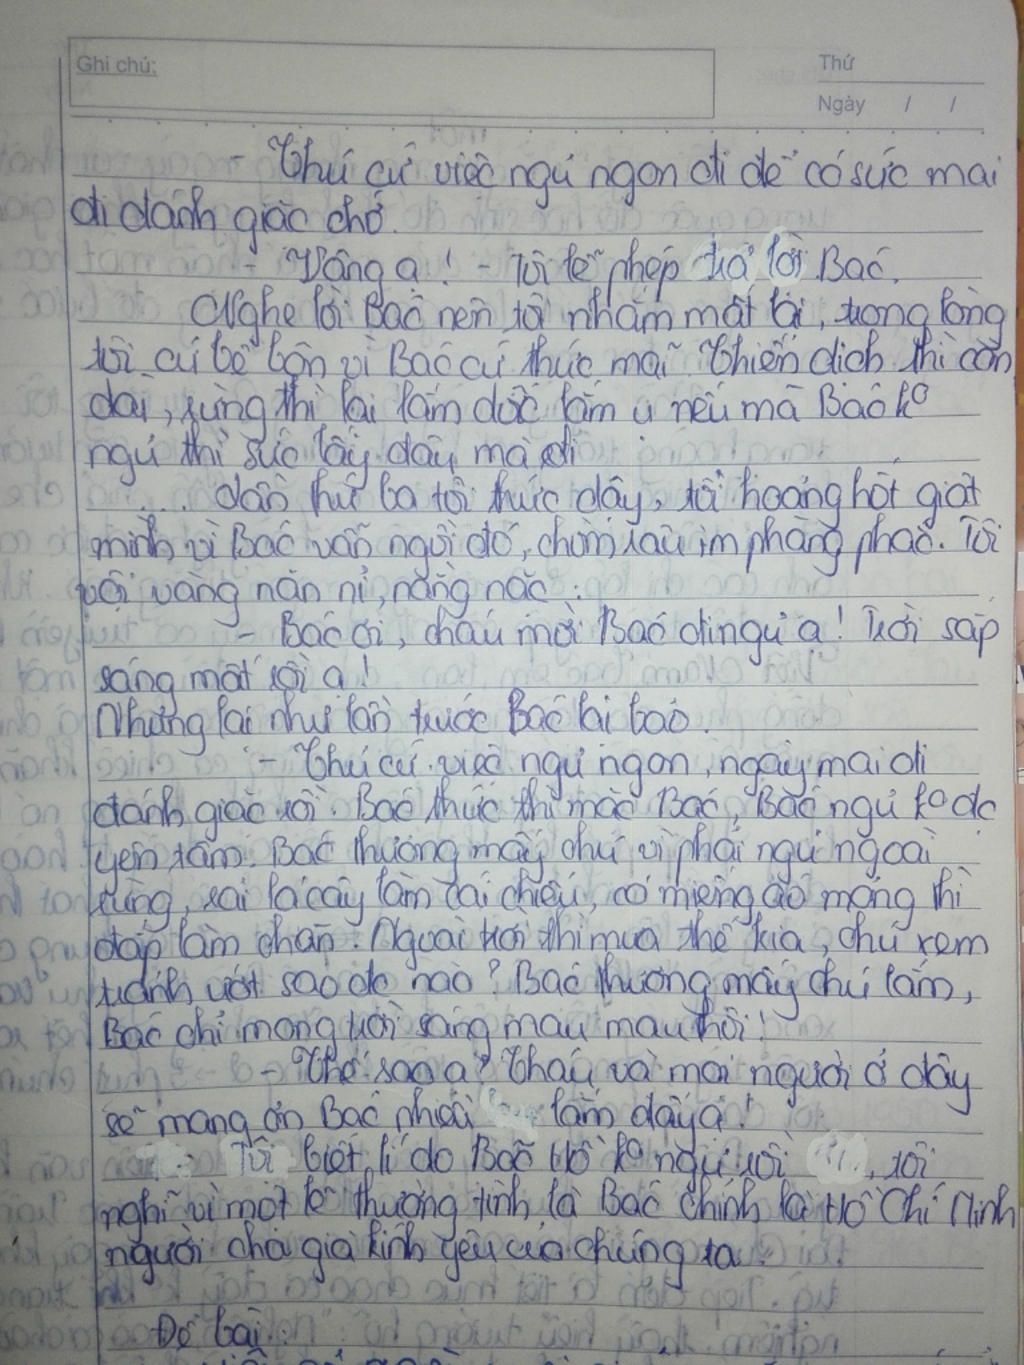 Ghi chú:
Thứ
Ngày / /
- Chú cứ việc ngủ ngon đi để có sức mai
đi đánh giặc chớ.
- Vâng ạ! - Tôi lễ phép trả lời Bác.
Nghe lời Bác nên tôi nhắm mắt lại, trong lòng
tôi cứ bề bộn vì Bác cứ thức mãi. Chiến dịch thì còn
dài, rừng thì lại lắm dốc lắm ụ nếu mà Bác ko
ngủ thì sức lấy đây mà đi
.... dần thứ ba tôi thức dậy, tôi hoảng hốt giật
mình vì Bác vẫn ngồi đó, chòm râu im phăng phắc. Tôi
vội vàng năn nỉ, nằng nặc :
- Bác ơi, cháu mời Bác đi ngủ ạ! Trời sắp
sáng mất rồi ạ!
Nhưng lại như lần trước Bác lại bảo.
- Chú cứ việc ngủ ngon, ngày mai đi
đánh giặc rồi. Bác thức thì mặc Bác, Bác ngủ ko đc
yên tâm. Bác thương mấy chú vì phải ngủ ngoài
rừng, rải lá cây làm cái chiếu, có miếng áo mỏng thì
đắp làm chăn. Ngoài trời thì mưa thế kia, chú xem
tránh ướt sao đc nào? Bác thương mấy chú lắm,
Bác chỉ mong trời sáng mau mau thôi!
- Thế sao ạ? Cháu và mọi người ở đây
sẽ mang ơn Bác nhiều lắm đấy ạ!
Tôi biết lí do Bác Hồ ko ngủ rồi , tôi
nghĩ vì một lẽ thường tình là Bác chính là Hồ Chí Minh
người cha già kính yêu của chúng ta.
Đề bài: